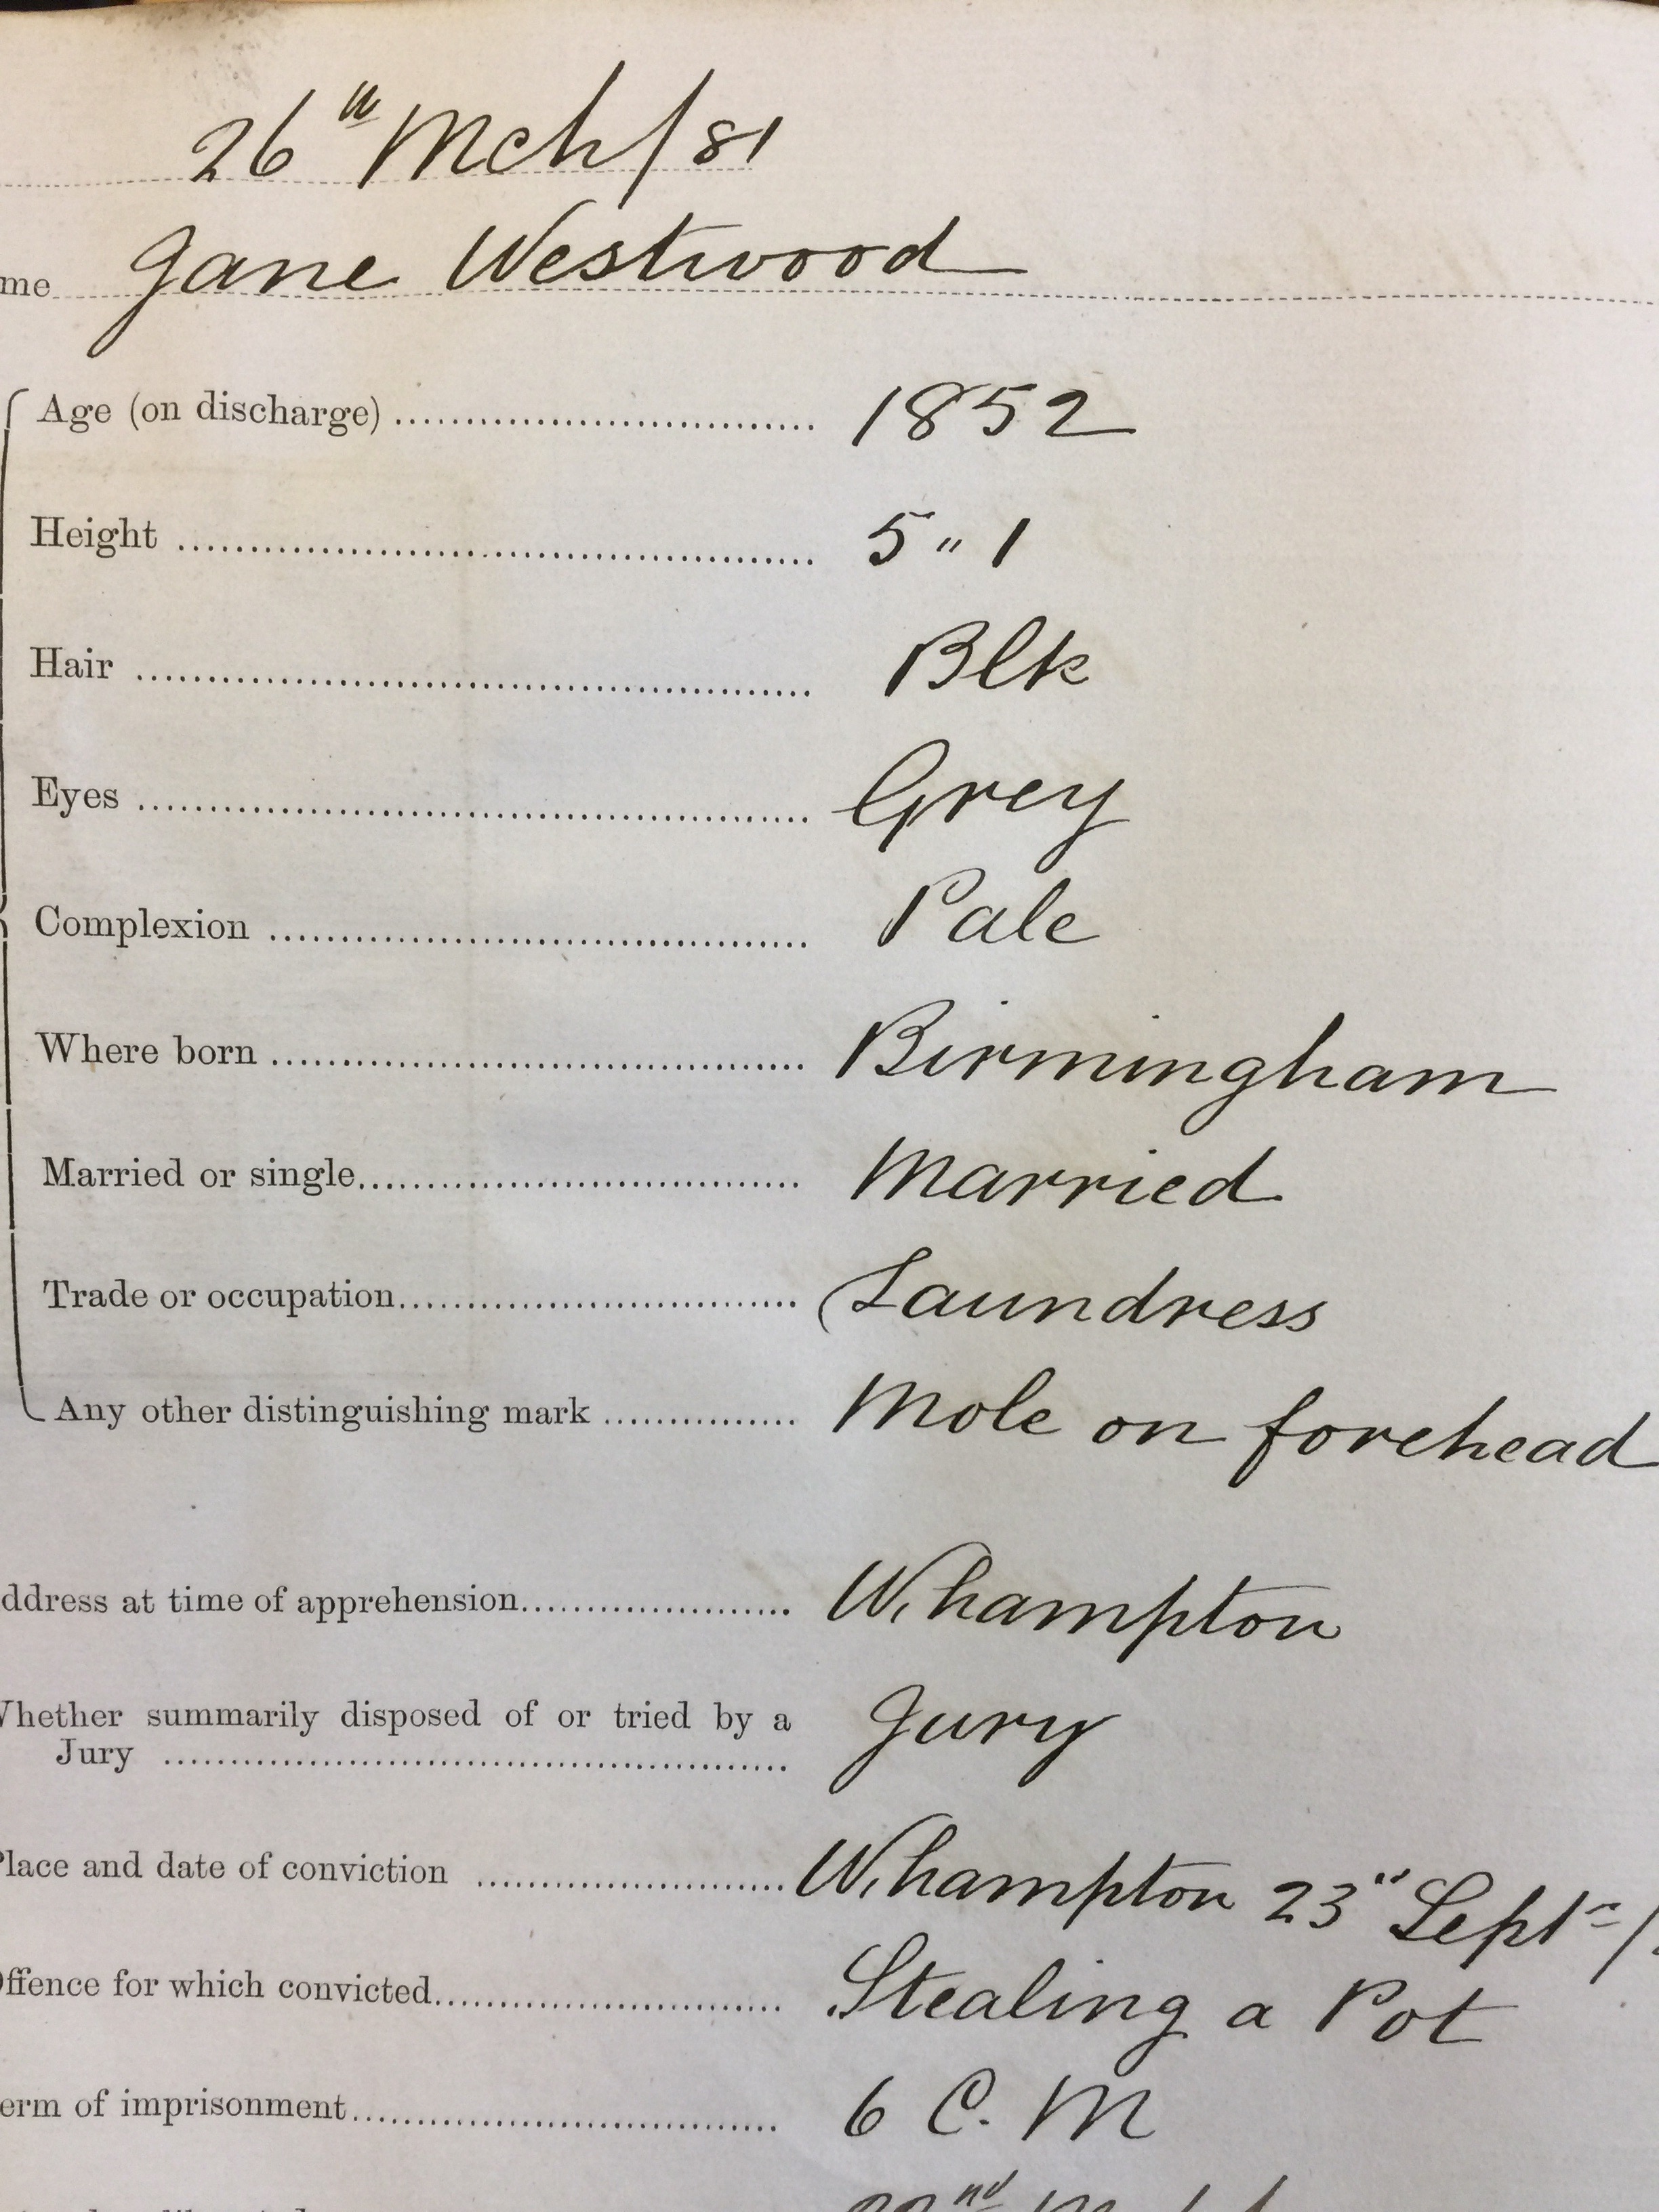 26th Mch/81
me Jane Westwood
Age (on discharge) 1852
Height 5 " 1
Hair Blk
Eyes Grey
Complexion Pale
Where born Birmingham
Married or single Married
Trade or occupation Laundress
Any other distinguishing mark Mole on forehead
ddress at time of apprehension W.hampton
Whether summarily disposed of or tried by a
Jury Jury
Place and date of conviction W.hampton 23rd Septr /
Offence for which convicted Stealing a Pot
erm of imprisonment 6 C. M